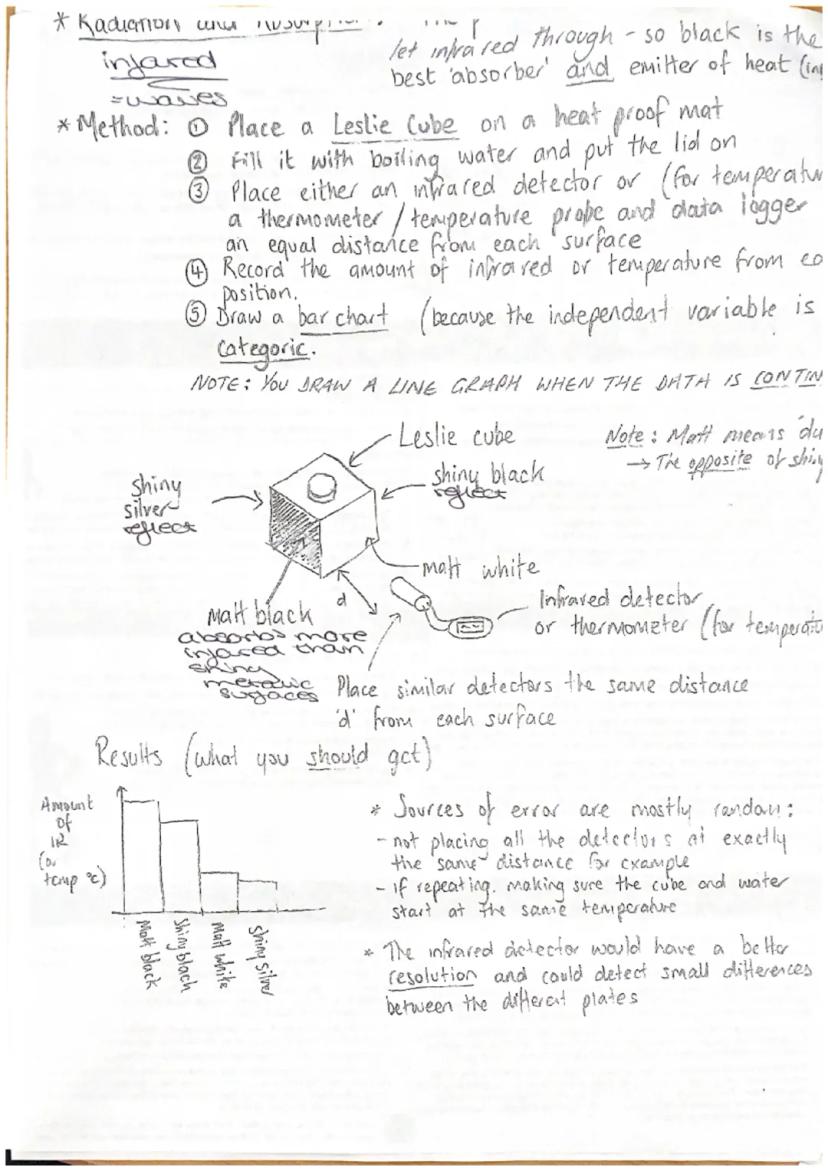 * Radiation and
let infrared through - so black is the
infrared
best 'absorber' and emitter of heat
= waves
* Method: ① Place a Leslie Cube on a heat proof mat
② Fill it with boiling water and put the lid on
③ Place either an infrared detector or (for temperatur
a thermometer / temperature probe and data logger
an equal distance from each surface
④ Record the amount of infrared or temperature from ea
position.
⑤ Draw a bar chart (because the independent variable is
categoric.
NOTE: YOU DRAW A LINE GRAPH WHEN THE DATA IS CONTIN
Leslie cube
Note: Matt means du
→ The opposite of shiny
shiny
silver
reflect
shiny black
reflect
matt white
Matt black
absorbs more
infrared than
shiny
metallic
surfaces
d
Infrared detector
or thermometer (for temperatu
Place similar detectors the same distance
'd' from each surface
Results (what you should get)
Amount
of
IR
(or
temp °c)
Matt black
Shiny black
Matt white
Shiny silver
* Sources of error are mostly random:
- not placing all the detectors at exactly
the same distance for example
- if repeating, making sure the cube and water
start at the same temperature
* The infrared detector would have a better
resolution and could detect small differences
between the different plates